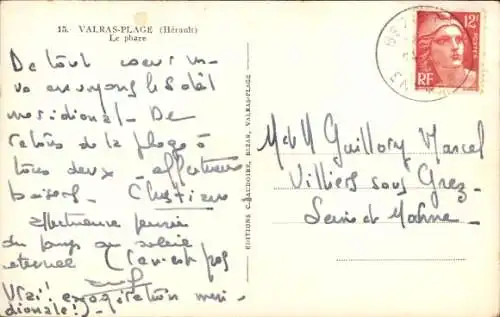 15. VALRAS-PLAGE (Hérault)
Le phare
De tout coeur n-
vs envoyons le Soleil
méridional - De
retour de la plage à
tous deux affectueux
baisers. Christiane
affectueuse pensée
du pays au soleil
éternel (ce n'est pas
Vrai! exagération méri-
dionale!) -
EDITIONS C. BAUDOIRE, BAZAR, VALRAS-PLAGE
12F
RF
M et M Guillory Marcel
Villiers sous Grez
Seine et Marne